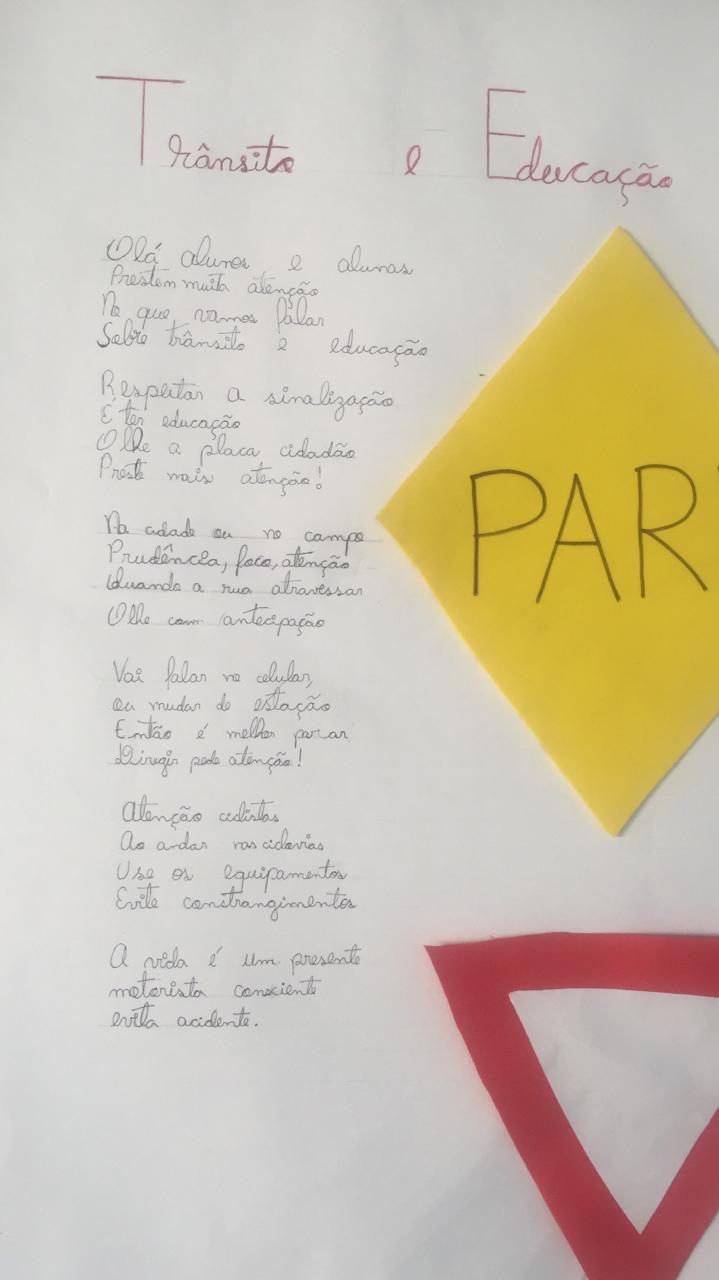 Trânsito e Educação
Olá alunos e alunas
Prestem muita atenção
No que vamos falar
Sobre trânsito e educação
Respeitar a sinalização
É ter educação
Olhe a placa cidadão
Preste mais atenção!
Na cidade ou no campo
Prudência, foco, atenção
Quando a rua atravessar
Olhe com antecipação
Vai falar no celular,
ou mudar de estação
Então é melhor parar
Dirigir pede atenção!
Atenção ciclistas
Ao andar nas ciclovias
Use os equipamentos
Evite constrangimentos
A vida é um presente
motorista consciente
evita acidente.
PAR